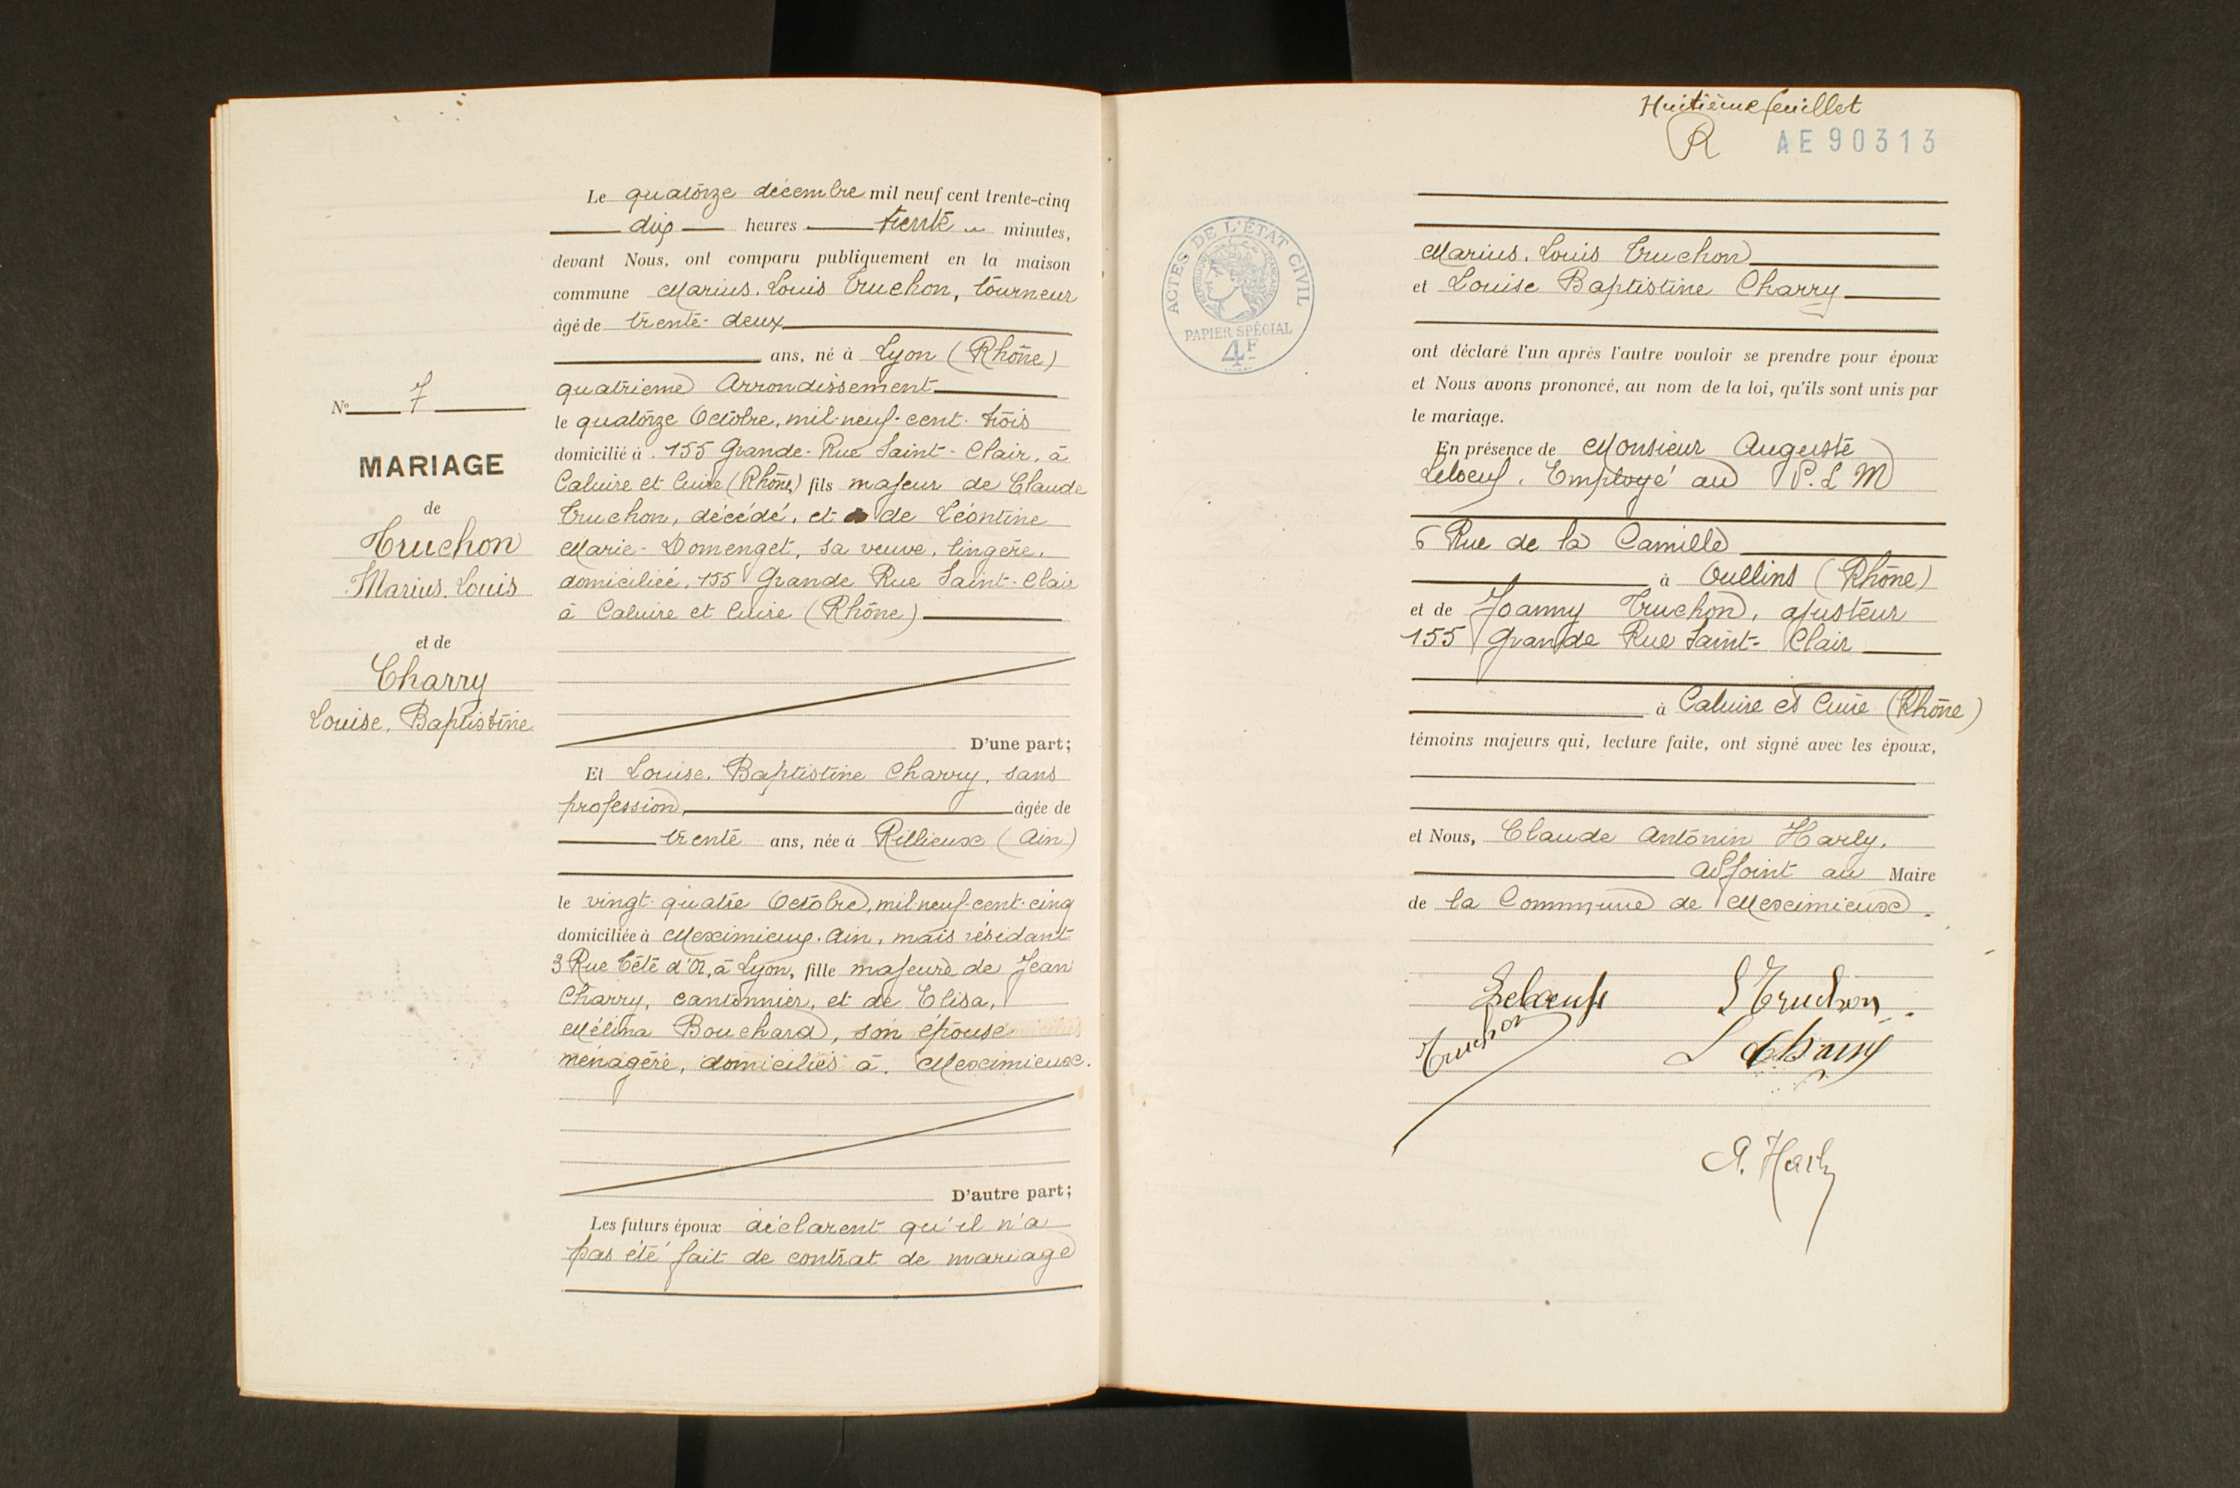 Le quatorze décembre mil neuf cent trente-cinq
dix heures trente minutes,
devant Nous, ont comparu publiquement en la maison
commune Marius. Louis Truchon, tourneur
âgé de trente-deux
ans, né à Lyon (Rhône)
quatrième Arrondissement
le quatorze Octobre, mil-neuf-cent-trois
domicilié à 155 Grande-Rue Saint-Clair, à
Caluire et Cuire (Rhône) fils majeur de Claude
Truchon, décédé, et de Léontine
Marie-Domenget, sa veuve, lingère,
domiciliée, 155 Grande Rue Saint-Clair
à Caluire et Cuire (Rhône)
D'une part;
Et Louise. Baptistine Charry, sans
profession, âgée de
trente ans, née à Rillieux (Ain)
le vingt-quatre Octobre, mil-neuf-cent-cinq
domiciliée à Meximieux. Ain, mais résidant
3 Rue Tête d'Or, à Lyon, fille majeure de Jean
Charry, cantonnier, et de Elisa,
Mélina Bouchard, son épouse
ménagère, domiciliés à. Meximieux.
D'autre part;
Les futurs époux déclarent qu'il n'a
pas été fait de contrat de mariage
N° 7
MARIAGE
de
Truchon
Marius. Louis
et de
Charry
Louise. Baptistine
Huitième feuillet
R AE 90313
ACTES DE L'ÉTAT CIVIL
PAPIER SPÉCIAL
4F
Marius. Louis Truchon
et Louise Baptistine Charry
ont déclaré l'un après l'autre vouloir se prendre pour époux
et Nous avons prononcé, au nom de la loi, qu'ils sont unis par
le mariage.
En présence de Monsieur Auguste
Leboeuf. Employé au P. L M
6 Rue de la Camille
à Oullins (Rhône)
et de Joanny Truchon, ajusteur
155 Grande Rue Saint-Clair
à Caluire et Cuire (Rhône)
témoins majeurs qui, lecture faite, ont signé avec les époux,
et Nous, Claude Antonin Harly,
adjoint au Maire
de la Commune de Meximieux.
Leboeuf L Truchon
Truchon L Charry
A. Harly